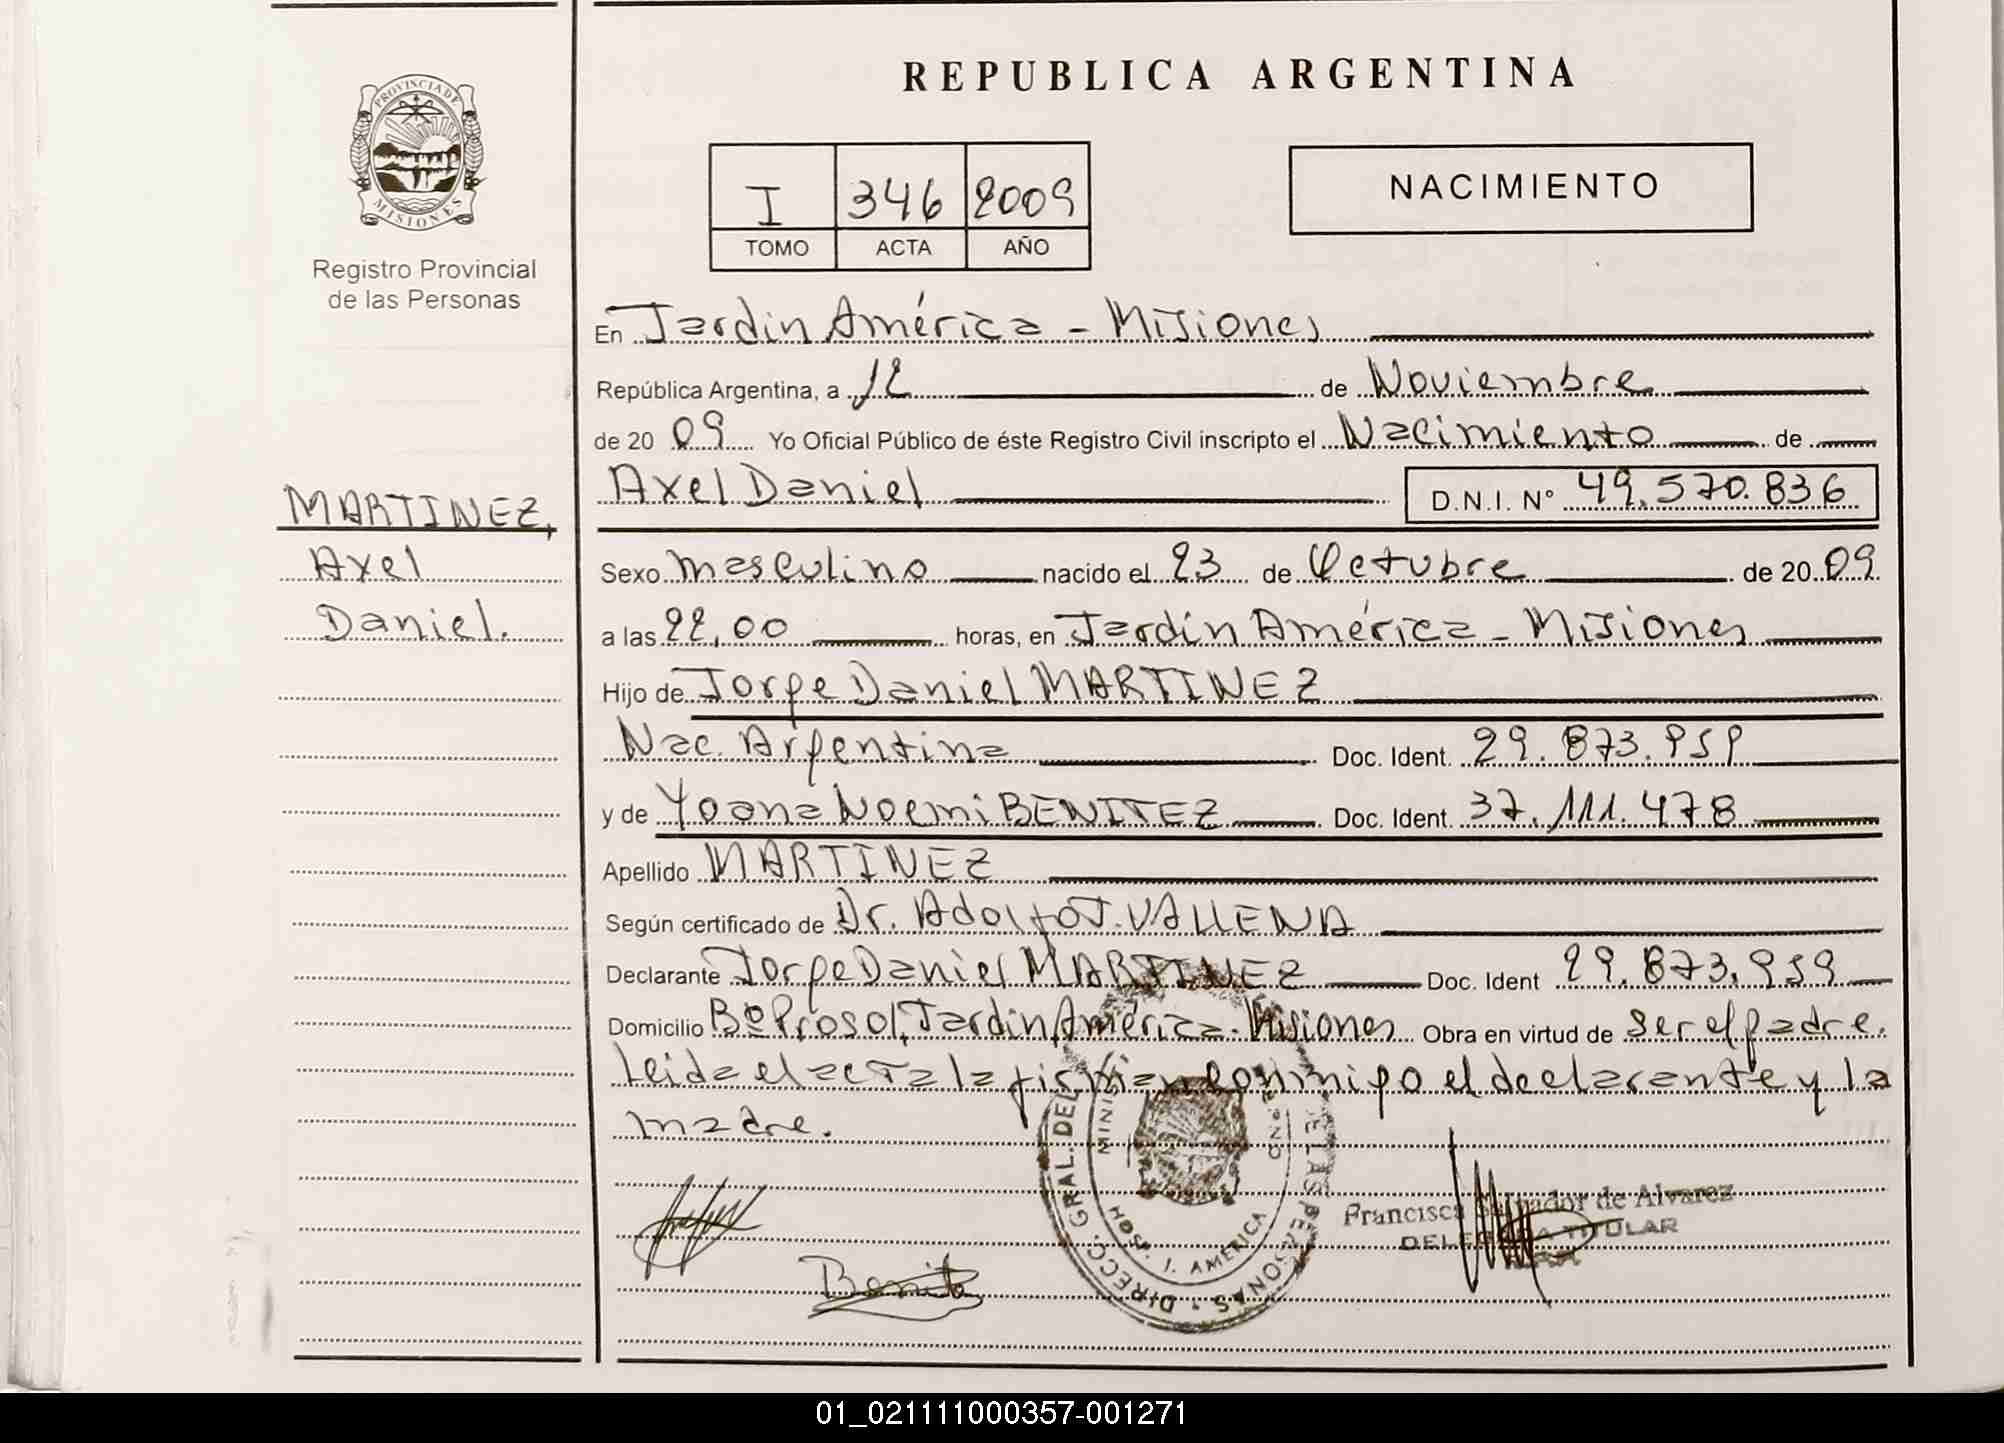 REPUBLICA ARGENTINA
PROVINCIA DE
MISIONES
Registro Provincial
de las Personas
I 346 2009
TOMO ACTA AÑO
NACIMIENTO
En Jardin América - Misiones
República Argentina, a 12 de Noviembre
de 2009 Yo Oficial Público de éste Registro Civil inscripto el Nacimiento de
Axel Daniel D.N.I. Nº 49.570.836
MARTINEZ,
Axel
Daniel.
Sexo masculino nacido el 23 de Octubre de 2009
a las 22,00 horas, en Jardín América - Misiones
Hijo de Jorge Daniel MARTINEZ
Nac. Argentina Doc. Ident. 29.873.959
y de Yoana Noemi BENITEZ Doc. Ident. 37.111.478
Apellido MARTINEZ
Según certificado de Dr. Adolfo J. VALLENA
Declarante Jorge Daniel MARTINEZ Doc. Ident 29.873.959
Domicilio Bº Prosol, Jardin América - Misiones Obra en virtud de ser el padre.
Leida el acta la firman conmigo el declarante y la
madre.
DIRECC. GRAL. DEL
PERSONAS
J. AMERICA
Benitez
Francisca de Alvarez
DELEGADA TITULAR
01_021111000357-001271